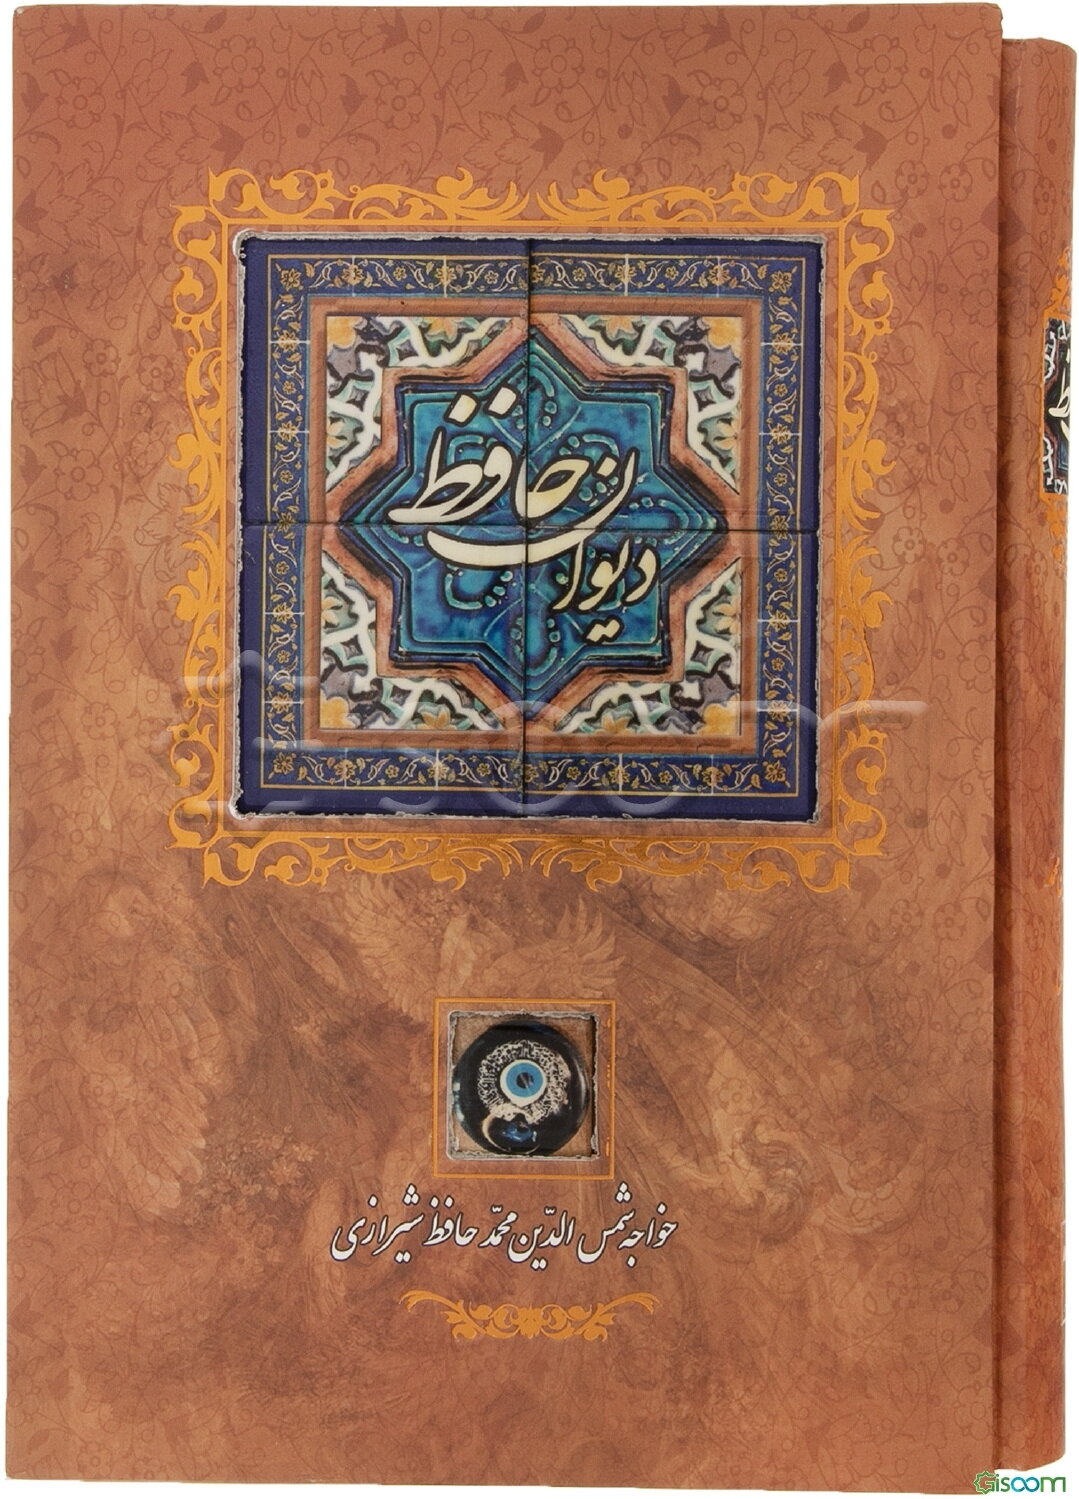 دیوان حافظ
خواجه شمس الدّین محمّد حافظ شیرازی
Gisoom